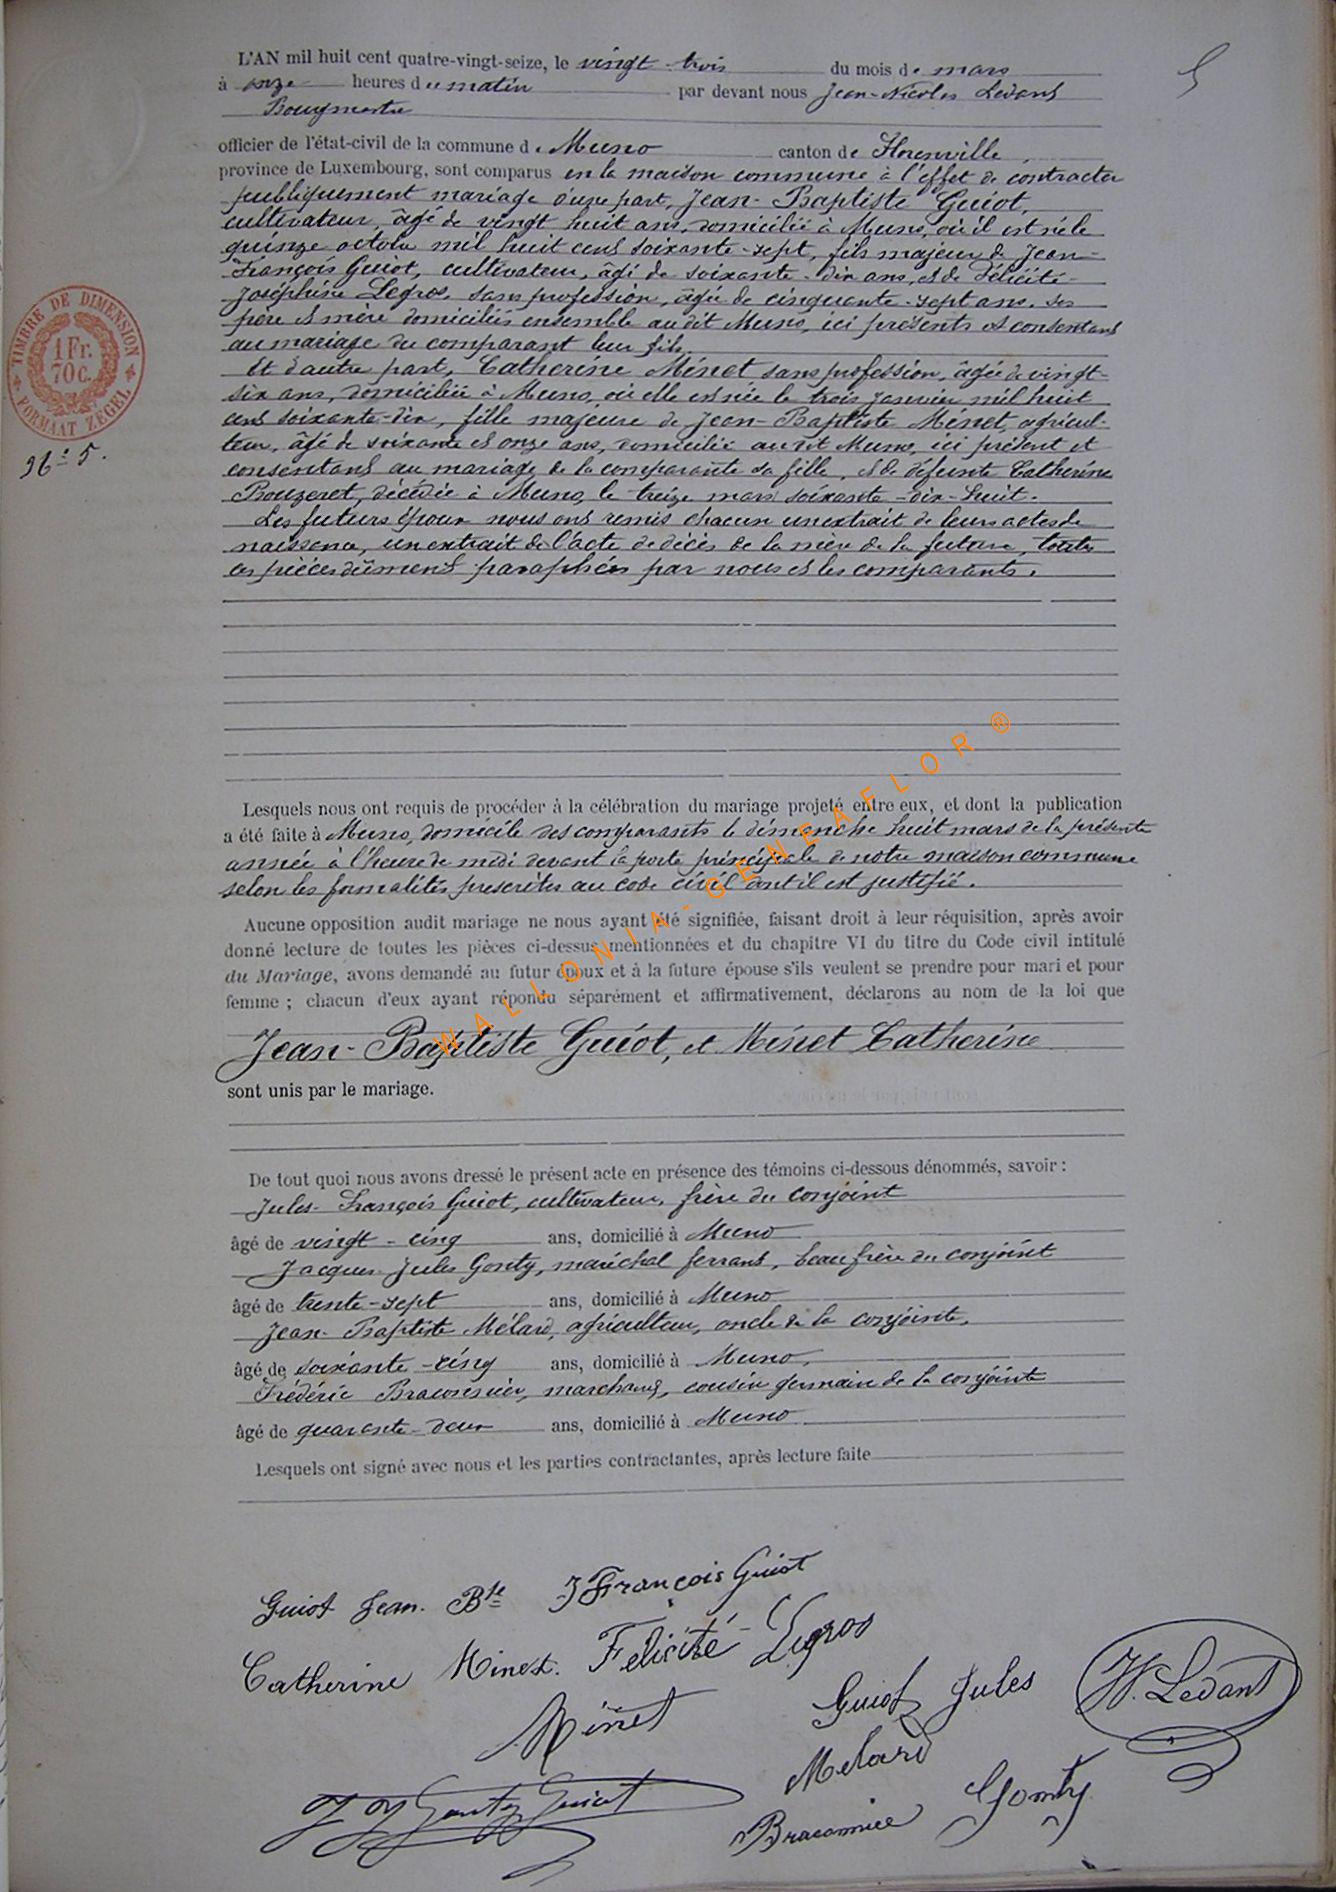 5
L'AN mil huit cent quatre-vingt-seize, le vingt-trois du mois de mars
à onze heures du matin par devant nous Jean-Nicolas Ledant
Bourgmestre
officier de l'état-civil de la commune de Muno canton de Florenville,
province de Luxembourg, sont comparus en la maison commune à l'effet de contracter
publiquement mariage d'une part, Jean-Baptiste Guiot,
cultivateur, âgé de vingt huit ans, domicilié à Muno, où il est né le
quinze octobre mil huit cent soixante-sept, fils majeur de Jean-
François Guiot, cultivateur, âgé de soixante-dix ans, et de Félicité-
Joséphine Legros, sans profession, âgée de cinquante-sept ans, ses
père et mère domiciliés ensemble au dit Muno, ici présents et consentant
au mariage du comparant leur fils.
Et d'autre part, Catherine Minet sans profession, âgée de vingt-
six ans, domiciliée à Muno, où elle est née le trois janvier mil huit
cent soixante-dix, fille majeure de Jean-Baptiste Minet, agricul-
teur, âgé de soixante et onze ans, domicilié au dit Muno, ici présent et
consentant au mariage de la comparante sa fille, et de défunte Catherine
Bouzeret, décédée à Muno, le treize mars soixante-dix-huit.
Les futurs époux nous ont remis chacun un extrait de leurs actes de
naissance, un extrait de l'acte de décès de la mère de la future, toutes
ces pièces dûment paraphées par nous et les comparants.
TIMBRE DE DIMENSION
1 Fr.
70 c.
FORMAAT ZEGEL
N° 5.
Lesquels nous ont requis de procéder à la célébration du mariage projeté entre eux, et dont la publication
a été faite à Muno, domicile des comparants le dimanche huit mars de la présente
année à l'heure de midi devant la porte principale de notre maison commune
selon les formalités prescrites au code civil dont il est justifié.
Aucune opposition audit mariage ne nous ayant été signifiée, faisant droit à leur réquisition, après avoir
donné lecture de toutes les pièces ci-dessus mentionnées et du chapitre VI du titre du Code civil intitulé
du Mariage, avons demandé au futur époux et à la future épouse s'ils veulent se prendre pour mari et pour
femme ; chacun d'eux ayant répondu séparément et affirmativement, déclarons au nom de la loi que
Jean-Baptiste Guiot, et Minet Catherine
sont unis par le mariage.
WALLONIA-GENEAFLOR ®
De tout quoi nous avons dressé le présent acte en présence des témoins ci-dessous dénommés, savoir :
Jules-François Guiot, cultivateur, frère du conjoint
âgé de vingt-cinq ans, domicilié à Muno
Jacques-Jules Gonty, maréchal ferrant, beau frère du conjoint
âgé de trente-sept ans, domicilié à Muno
Jean-Baptiste Mélard, agriculteur, oncle de la conjointe,
âgé de soixante-cinq ans, domicilié à Muno,
Frédéric Braconnier, marchand, cousin germain de la conjointe
âgé de quarante-deux ans, domicilié à Muno
Lesquels ont signé avec nous et les parties contractantes, après lecture faite
Guiot Jean Bte J François Guiot
Catherine Minet. Félicité Legros
Minet Guiot Jules N. Ledant
Melard
Gonty Guiot Braconnier Gonty